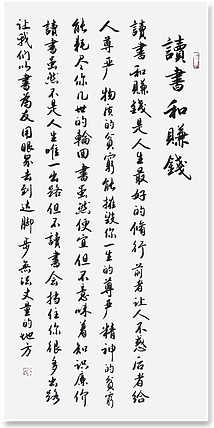 讀書和賺錢
讀書和賺錢是人生最好的脩行前者让人不惑后者给
人尊严物质的贫穷能摧毁你一生的尊严精神的贫穷
能耗尽你几世的輪回書雖然便宜但不意味着知识廉价
讀書雖然不是人生唯一出路但不讀書会挡住你很多出路
让我们以書為友用眼界去到达脚步無法丈量的地方